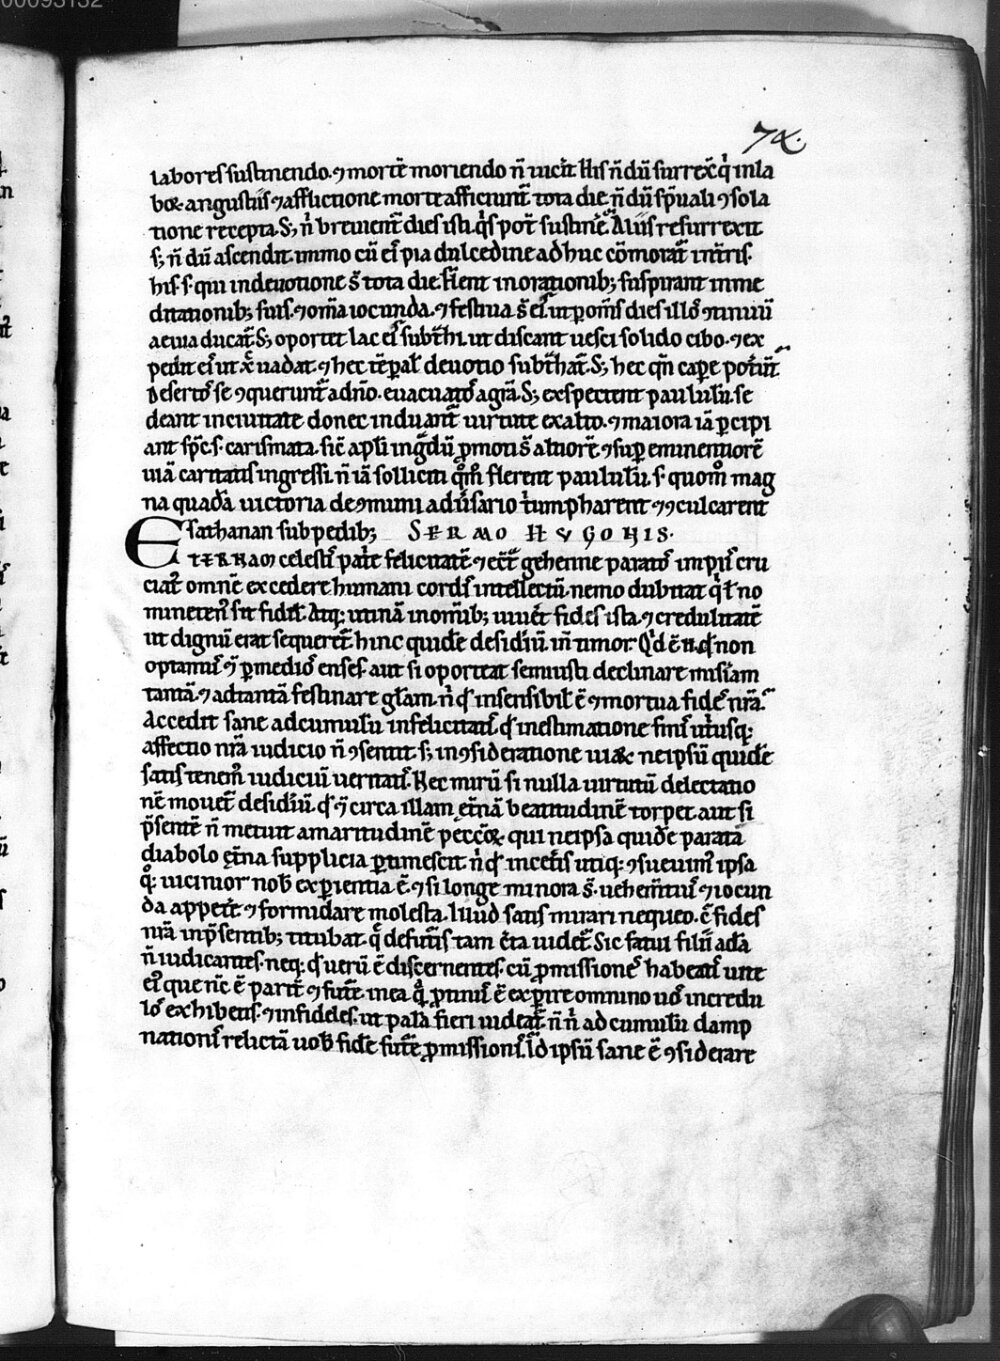 00093132
74.
labores sustinendo. ⁊ mortē moriendo n̄ uicit. His n̄dū surrex̄ q̇ in la
boꝝ angustiis ⁊ afflictione morte afficiunt̄ tota die. n̄ dū sp̄uali ꝯsola
tione recepta. S; n̄ breuient̄ dies isti. q̇s pot̄ sustin̄e. Aliis resurrexit
s; n̄ dū ascendit. immo cū eis pia dulcedine adhuc cōmorat̄ in tr̄is.
his .s. qui in deuotione s̄t tota die. flent in orationib; suspirant in me
ditationib; suis. ⁊ om̄a iocunda. ⁊ festiua s̄ eis ut p om̄s dies illos
aeuia ducat̄. S; oportet lac eis subt̄hi. ut discant uesci solido cibo. ⁊ ex
pedit eis ut xp̄c uadat. ⁊ hec tēpal̄ deuotio subt̄hat̄. S; hec qn̄ cape poter̄t
desertos se ⁊ querunt̄ a dn̄o. euacuatos a gr̄a. S; exspectent paululū. se
deant in ciuitate donec induant̄ uirtute ex alto. ⁊ maiora iā pcipi
ant sp̄c .s. carismata. sic̄ apl̄i in gdū pmoti s̄ altiorē. ⁊ sup eminentiorē
uiā caritatis ingressi. n̄ iā solliciti flerent paululū. s quom̊ mag
na quadā uictoria de ꝯmuni aduersario t̄umpharent. ⁊ ꝯculcarent
sathanan sub pedib; SERMO HUGONIS.
ETERNAM celestis pat̄e felicitatē. ⁊ ect̄ gehenne paratos impiis cru
ciat; omnē excedere humani cordis intellectū. nemo dubitat q̇ no
mine ten; sit fidel̄. Atq; utinā in omib; uiuet fides ista. ⁊ credulitatē
ut dignū erat sequeret̄ hinc quidē desidiū. in̄ timor. Qd ē n̄. qd non
optamus ⁊ p medios enses. aut si oporteat semiusti declinare misiam
tantā. ⁊ ad tantā festinare gl̄am. n̄ qd insensibil̄ ē ⁊ mortua fides nr̄a.
Accedit sane ad cumulū infelicitatis qd in estimatione finis ut̄usq;
affectio nr̄a iudicio n̄ ꝯsentit. s; in ꝯsideratione uiaꝝ ne ipsū quidē
satis tenem̄ iudiciū ueritatis. Nec mirū si nulla uirtutū delectatio
nē mouet̄ desidiū. qd ⁊ circa illam et̄nā beatitudinē torpet. aut si
p̄sentē n̄ metuit amaritudinē peccoꝝ. qui ne ipsa quidē parata
diabolo et̄na supplicia ptimescit. n̄ qd incertis utiq; ꝯsueuim; ipsa
q; uicinior nob̄ expientia ē. ⁊ si longe minora s̄. uehem̄tius ⁊ iocun
da appetē ⁊ formidare molesta. Illud satis mirari nequeo. ē fides
nr̄a in p̄sentib; titubat. q̄ de futuris tam c̄ta uidet̄. Sic fatui filii adā
n̄ iudicantes. neq; qd uerū ē discernentes. cū pmissionē habeatis uite
eius que nc̄ ē parit̄ ⁊ fut̄e. in ea q̄ ptinus ē expire omnino uos incredu
los exhibetis. ⁊ infideles. ut palā fieri uideat̄. n̄ n̄ ad cumulū damp
nationis relictā uob̄ fidē fut̄e pmissionis. Id ipsū sane ē ꝯsiderare